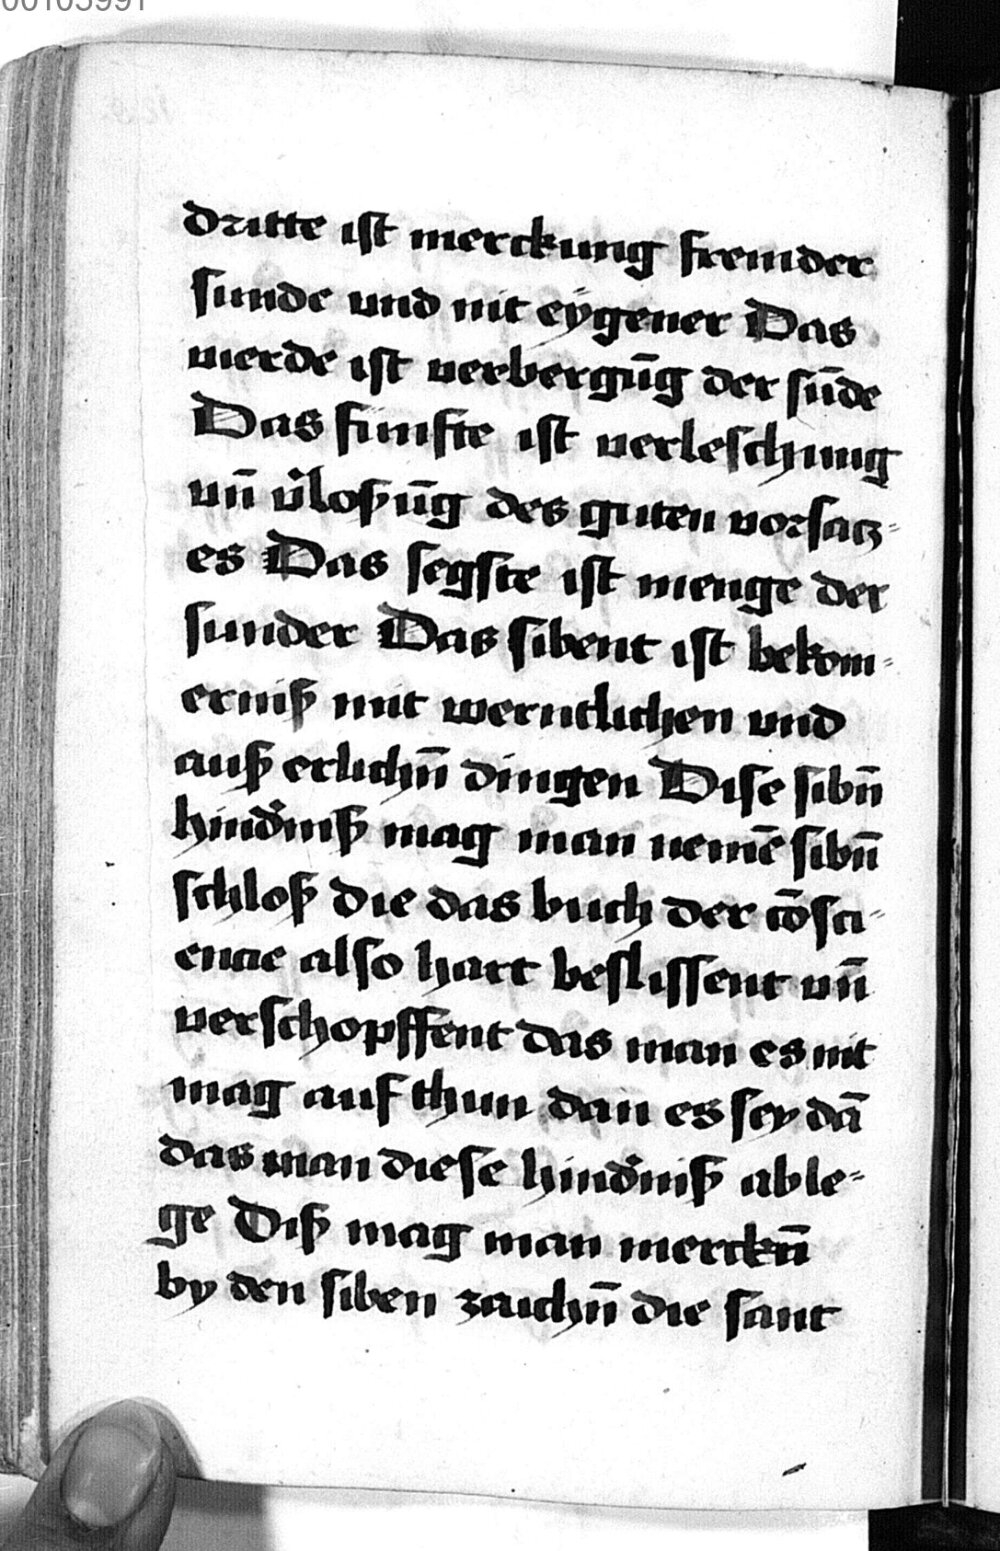 00103991
dritte ist merckung fremder
sunde und nit eÿgener Das
vierde ist verbergūg der sūde
Das finifte ist verleschung
vn̄ v̓loßūg des guten vorsacz-
es Das segste ist menge der
sunder Das sibent ist bekom-
erniß mit werntlichen vnd
auß erlichn̄ dingen Dise sibn̄
hind̓niß mag man nemē sibn̄
schloß die das buch der cōsci-
encie also hart beslissent vn̄
verschopffent das man es nit
mag auf thun dan es sey dā
das man diese hind̓niß able-
ge Diß mag man merckn̄
by den siben zaichn̄ die sant